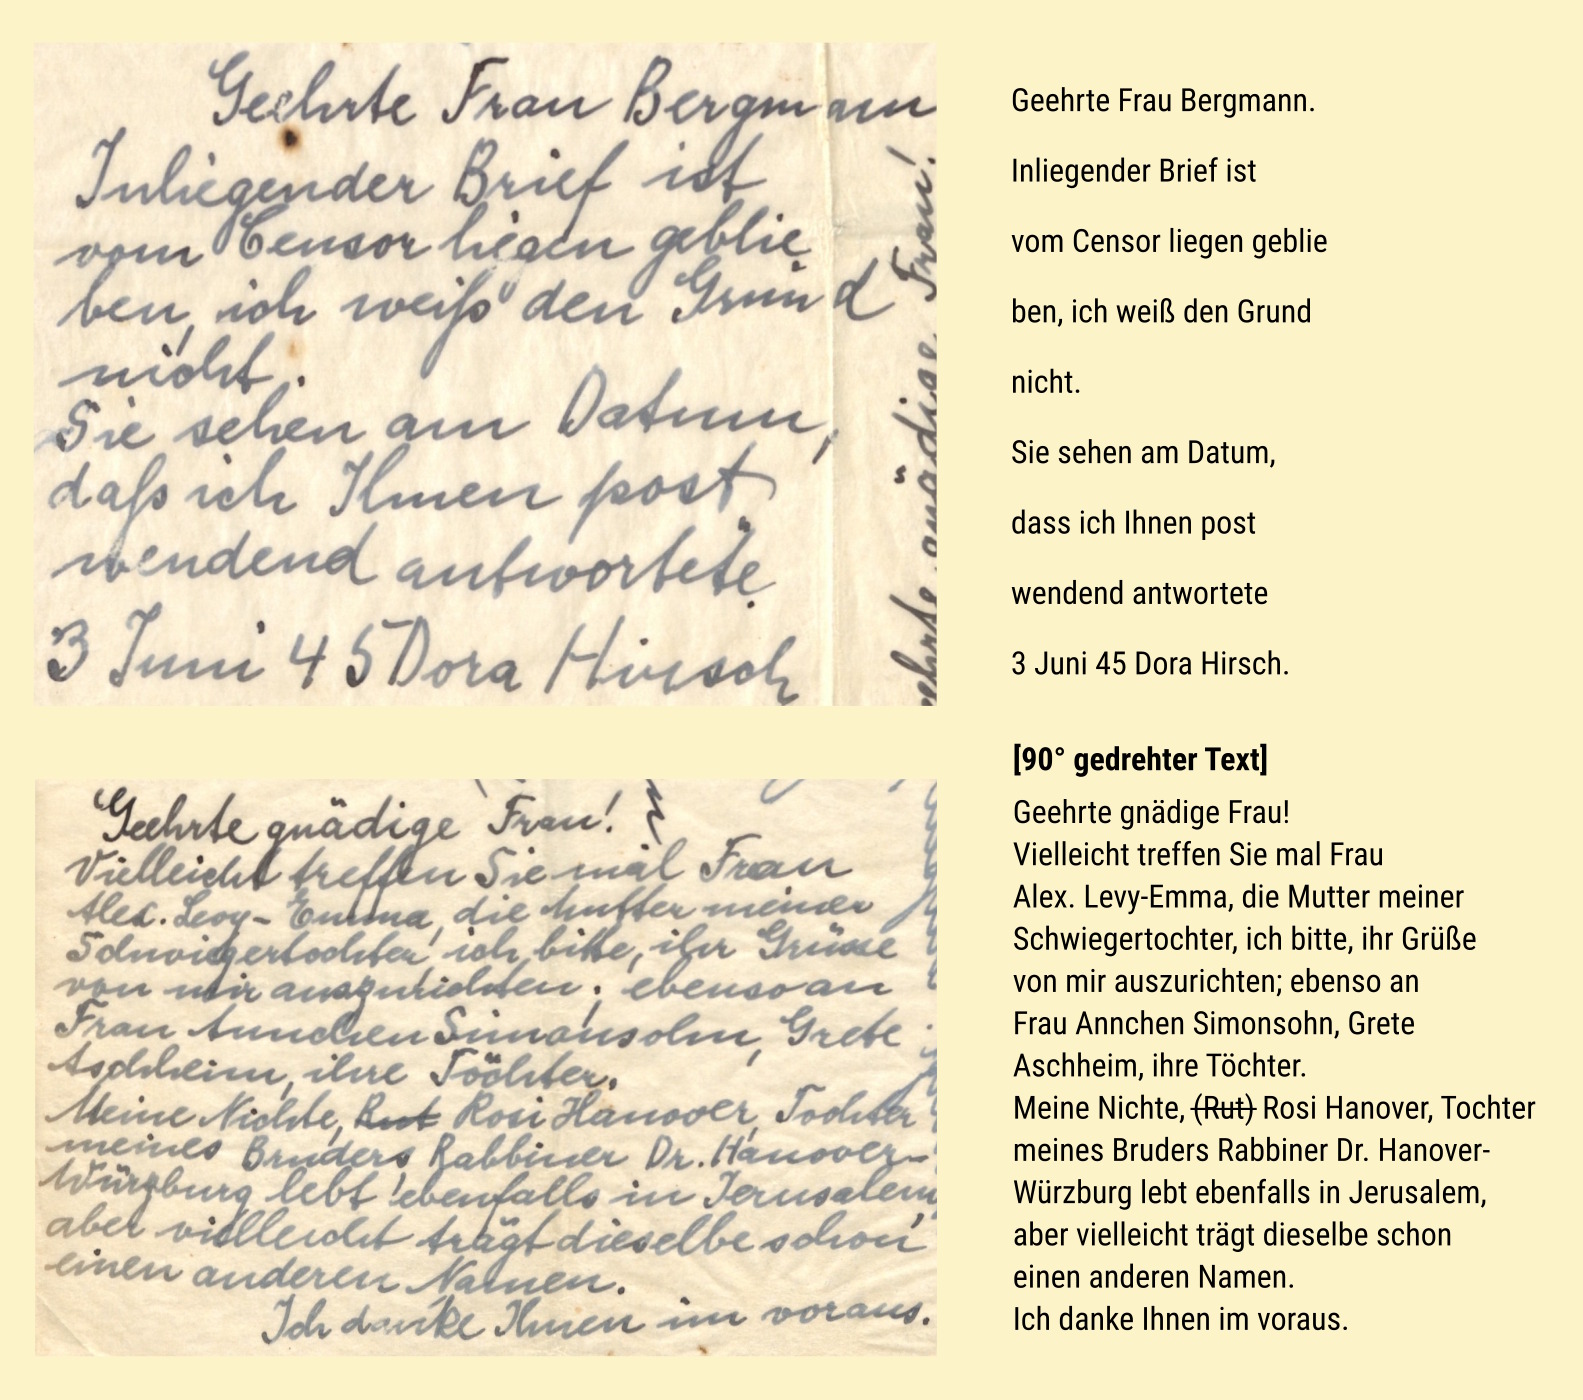 Geehrte Frau Bergmann
Inliegender Brief ist
vom Censor liegen geblie
ben, ich weiß den Grund
nicht.
Sie sehen am Datum,
daß ich Ihnen post
wendend antwortete.
3 Juni 45 Dora Hirsch
ehrte gnädige Frau!
Geehrte Frau Bergmann.
Inliegender Brief ist
vom Censor liegen geblie
ben, ich weiß den Grund
nicht.
Sie sehen am Datum,
dass ich Ihnen post
wendend antwortete
3 Juni 45 Dora Hirsch.
Geehrte gnädige Frau!
Vielleicht treffen Sie mal Frau
Alex. Levy-Emma, die Mutter meiner
Schwiegertochter, ich bitte, ihr Grüsse
von mir auszurichten; ebenso an
Frau Annchen Simonsohn, Grete
Aschheim, ihre Töchter.
Meine Nichte, Rut Rosi Hanover, Tochter
meines Bruders Rabbiner Dr. Hanover-
Würzburg lebt ebenfalls in Jerusalem,
aber vielleicht trägt dieselbe schon
einen anderen Namen.
Ich danke Ihnen im voraus.
[90° gedrehter Text]
Geehrte gnädige Frau!
Vielleicht treffen Sie mal Frau
Alex. Levy-Emma, die Mutter meiner
Schwiegertochter, ich bitte, ihr Grüße
von mir auszurichten; ebenso an
Frau Annchen Simonsohn, Grete
Aschheim, ihre Töchter.
Meine Nichte, (Rut) Rosi Hanover, Tochter
meines Bruders Rabbiner Dr. Hanover-
Würzburg lebt ebenfalls in Jerusalem,
aber vielleicht trägt dieselbe schon
einen anderen Namen.
Ich danke Ihnen im voraus.